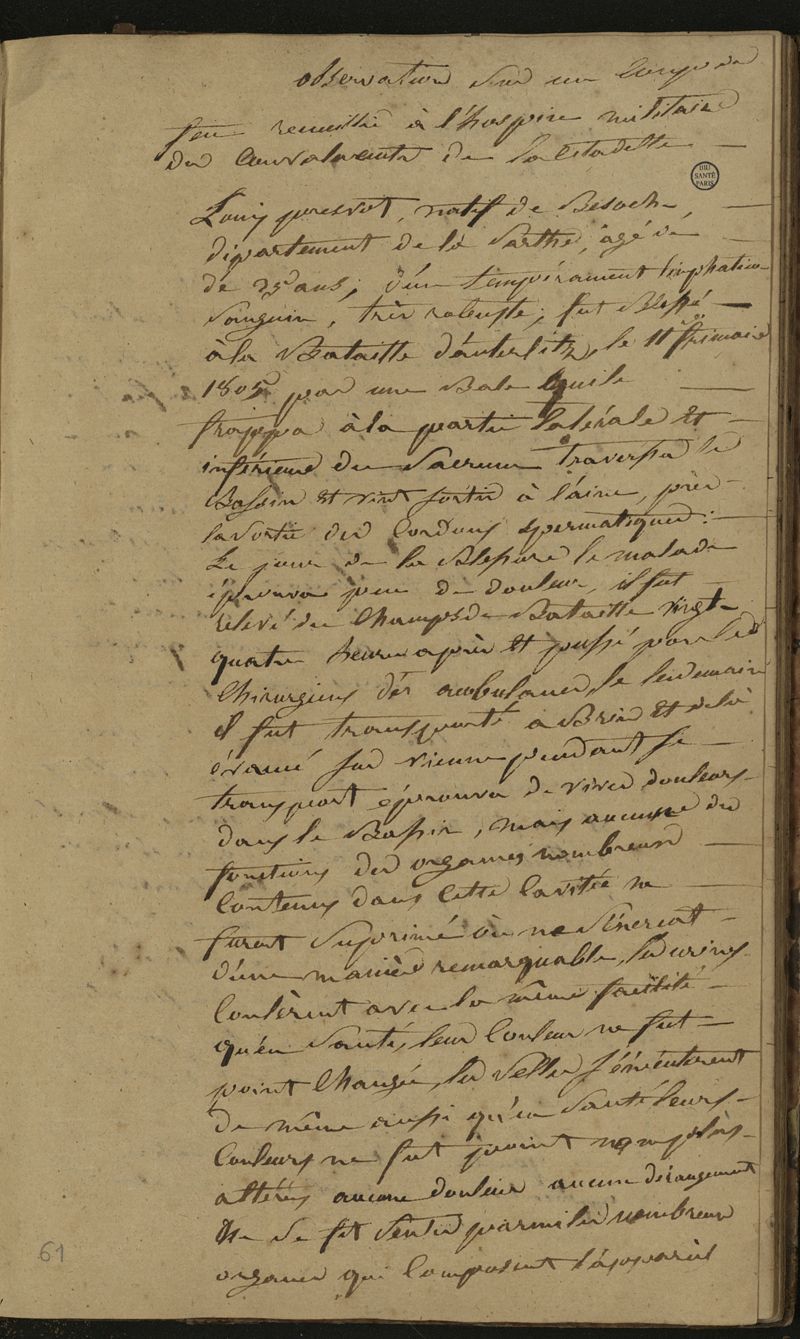 observation sur un coup de
feu recueillie à l'hospice militaire
des Convalescents de la Citadelle
BIU
SANTÉ
PARIS
Louis prevot, natif de
département de la Sarthe, agé de
de 25 ans, d'un tempérament limphatico
Sanguin, très robuste, fut Blessé
à la Bataille d'auterlitz, le 11 frimaire
1805 par une Bale quile
frappa à la partie latérale et
inférieure du Sacrum traversa le
Bassin et vint sortir à l'aine, près
la sortie des Cordons spermatiques :
Le jour de la Blessure le malade
éprouva peu de douleur, il fut
relevé du Champs de Bataille vingt
quatre heures après et passé par les
Chirurgiens des ambulances, le lendemain
il fut transporté a Brin et delà
évacué sur vienne pendant le
transport éprouva de vives douleurs
dans le Bassin, mais aucune des
fonctions des organes nombreux
Contenus dans Cette Cavitée ne
furent Suprimé ou ne
d'une manière remarquable, les urines
Coulèrent avec la même facilité
qu'en Santé, leur Couleur ne fut
point Changée, les selles
de même aussi qu'en Santé leurs
Couleurs ne fut point non plus
altérées aucune douleur aucun dérangement
ne se fit Sentir parmi les nombreux
organes qui Composent l'apparéil
61